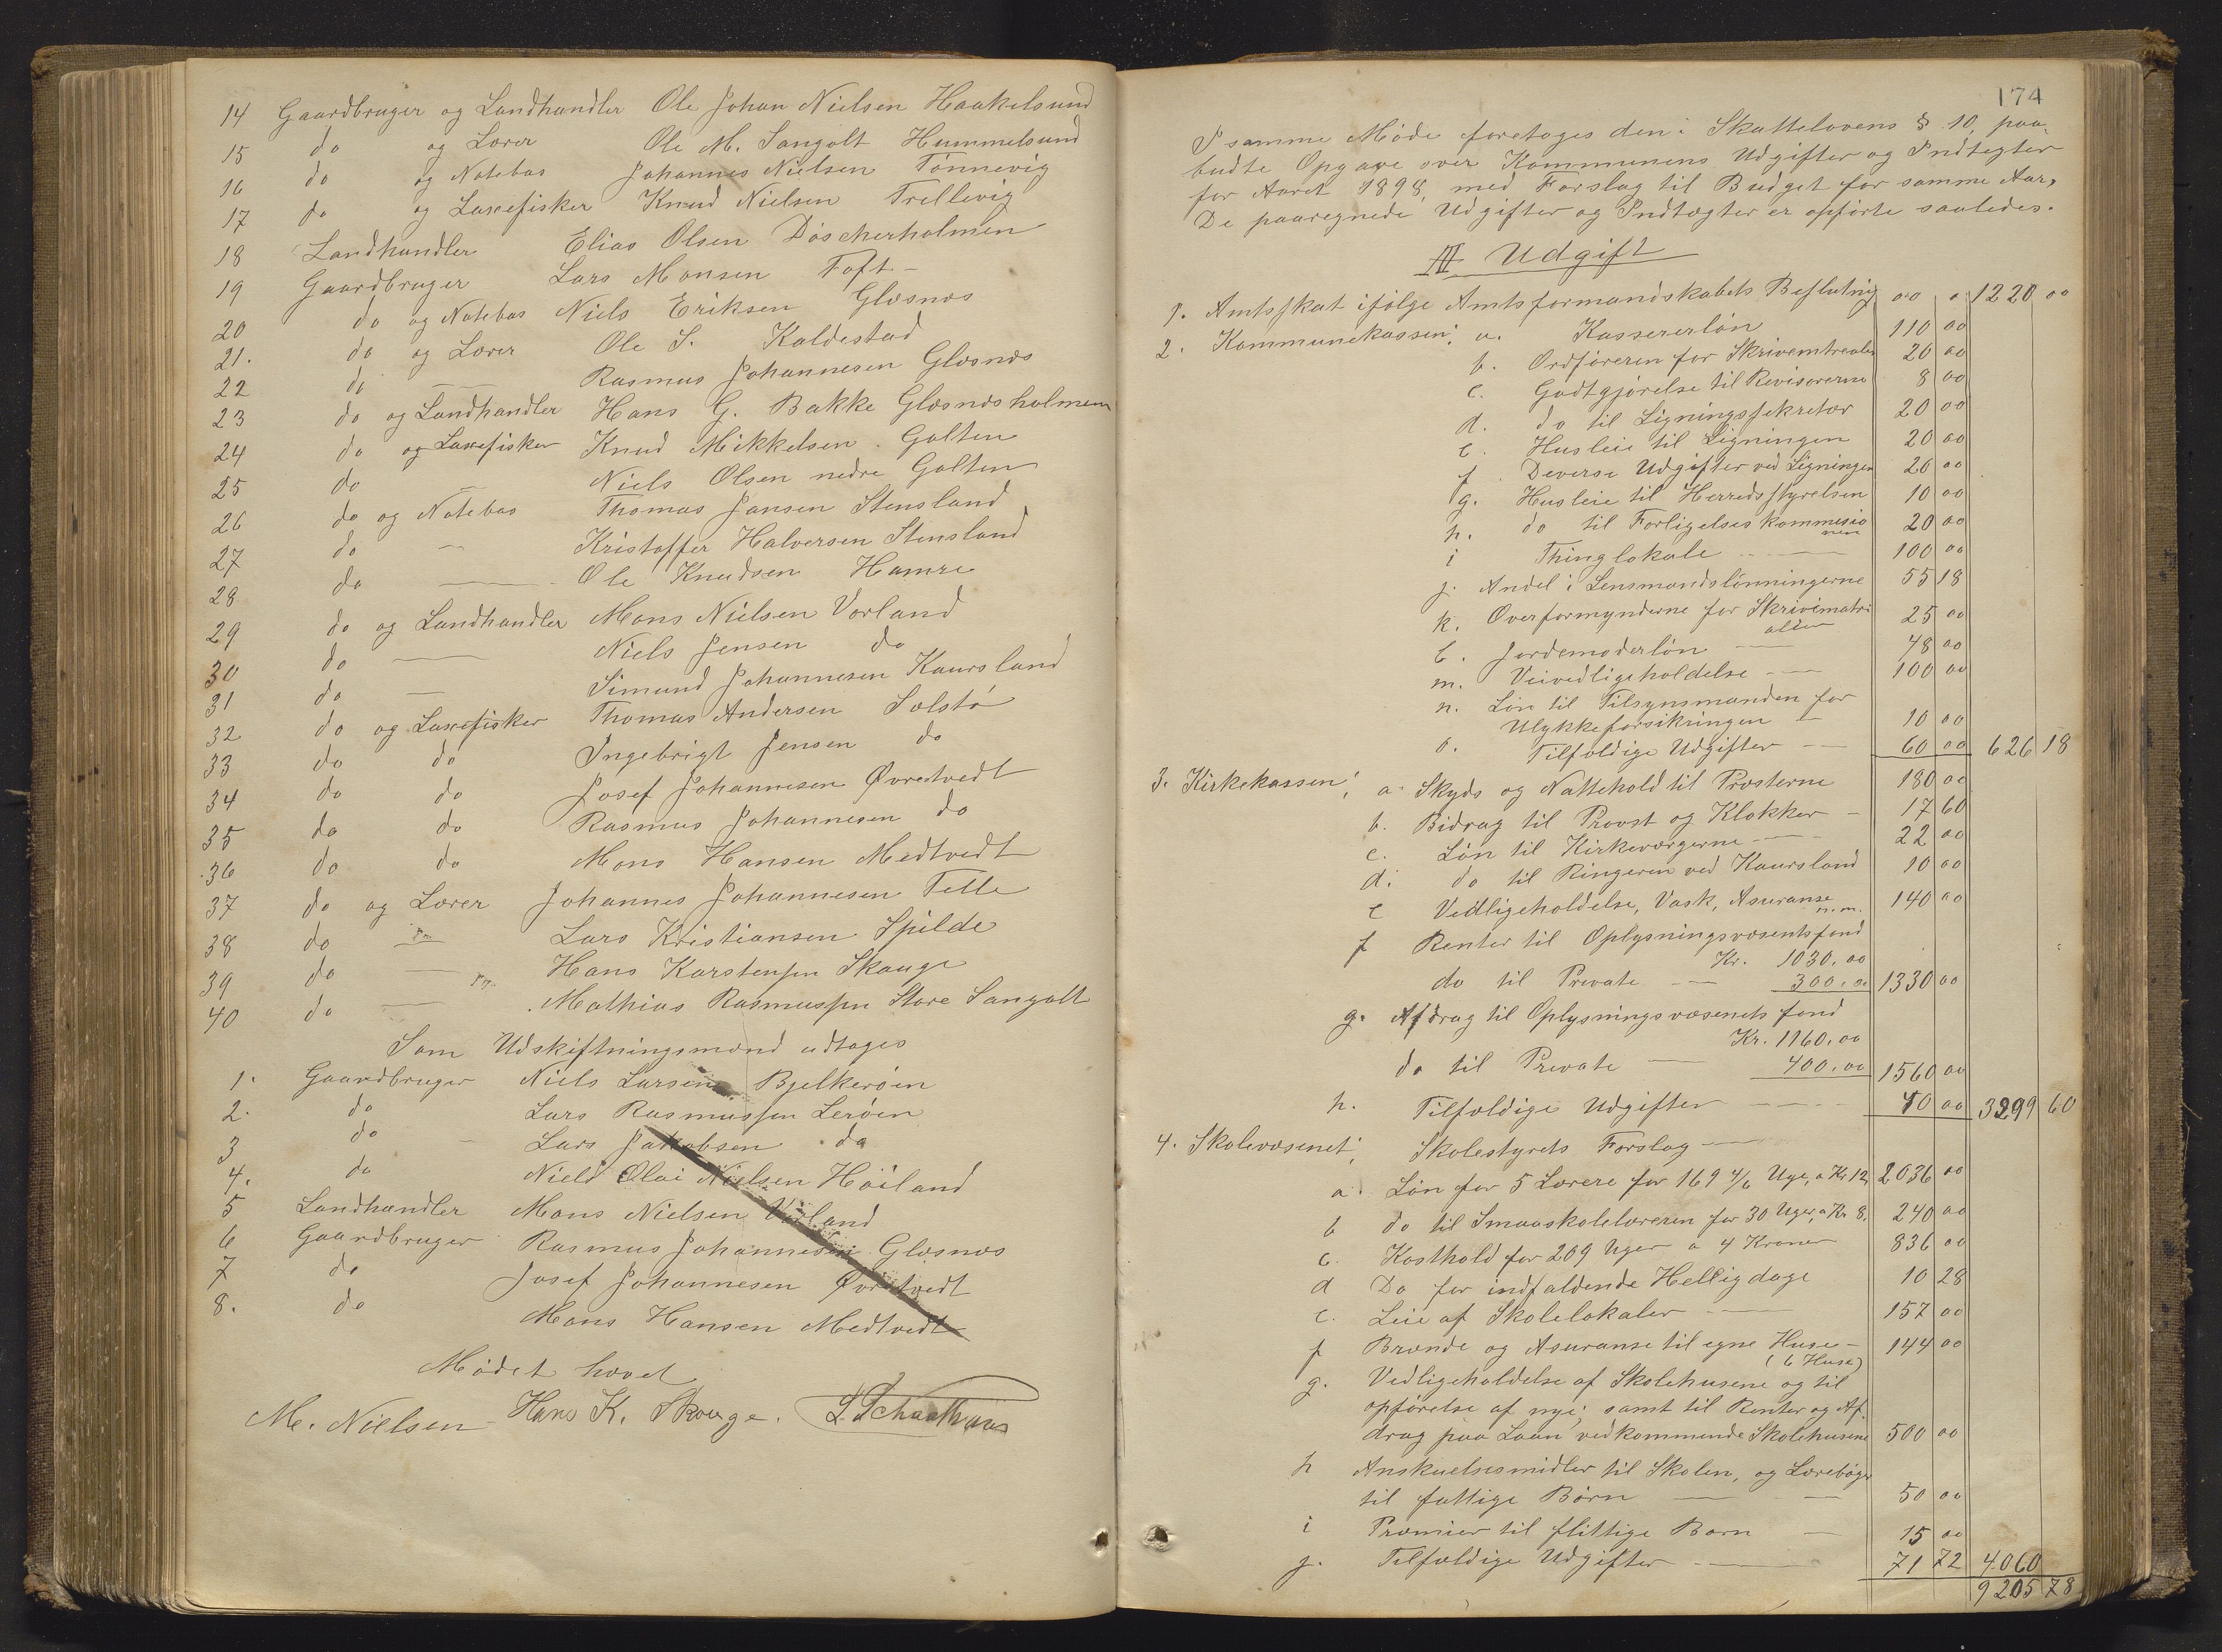 14 Gaardbruger og Landhandler Ole Johan Nielsen Haakelsund
15 do og Lærer Ole M. Sangolt Hummelsund
16 do og Notebas Johannes Nielsen Tønnevig
17 do og Laxefisker Knud Nielsen Trellevig
18 Landhandler Elias Olsen Döscherholmen
19 Gaardbruger Lars Monsen Toft -
20 do og Notebas Niels Eriksen Glæsnæs
21. do og Lærer Ole S. Kaldestad
22 do — Rasmus Johannesen Glæsnæs
23 do og Landhandler Hans G. Bakke Glæsnæsholmen
24 do og Laxefisker Knud Mikkelsen Golten
25 do — Niels Olsen nedre Golten
26 do og Notebas Thomas Jansen Stensland
27 do — Kristoffer Halversen Stensland
28 do — Ole Knudsen Hamre
29 do og Landhandler Mons Nielsen Vorland
30 do — Niels Jensen do
31 do — Simund Johannesen Kaursland
32 do og Laxefisker Thomas Andersen Solstö
33 do do Ingebrigt Jensen do
34 do do Josef Johannesen Øvretvedt
35 do do Rasmus Johannesen do
36 do do Mons Hansen Medtvedt
37 do og Lærer Johannes Johannesen Telle
38 do — Lars Kristiansen Spilde
39 do — Hans Karstensen Skauge
40 do — Mathias Rasmussen Store Sangolt
Som Udskiftningsmænd udtages
1. Gaardbruger Niels Larsen Bjelkeröen
2. do Lars Rasmussen Leröen
3 do - Lars Jakobsen do
4. do Niels Olai Nielsen Höiland
5 Landhandler Mons Nielsen Vorland
6 Gaardbruger Rasmus Johannesen Glæsnæs
7 do Josef Johannesen Øvretvedt
8. do Mons Hansen Medtvedt
Mödet hævet
M. Nielsen Hans K. Skouge.
174
I samme Möde foretoges den i Skattelovens § 10, paa-
budte Opgave over Kommunens Udgifter og Indtegter
for Aaret 1898, med Forslag til Budget for samme Aar,
De paaregnede Udgifter og Indtægter er opförte saaledes.
A Udgift
1. Amtsskat ifölge Amtsformandskabets Beslutnig 1220 00
2. Kommunekassen: a. Kassererlön 110 00
b. Ordföreren for Skrivemtrealer 20 00
c. Godtgjörelse til Revisorerne 8 00
d. do til Ligningssekretær 20 00
e. Husleie til Ligningen 20 00
f. Deverse Udgifter ved Ligningen 20 00
g. Husleie til Herredsstyrelsen 10 00
h. do til Forligelseskommisio nen 20 00
i Thinglokale — 100 00
j. Andel i Lensmandslönningerne 55 18
k. Overformynderne for Skrivimatri alier 25 00
l. Jordemoderlön — 48 00
m. Veivedligeholdelse — 100 00
n. Lön til Tilsynsmanden for
Ulykkeforsikringen — 10 00
o. Tilfældige Udgifter — 60 00 626 18
3. Kirkekassen: a. Skyds og Nattehold til Præsterne 180 00
b. Bidrag til Provst og Klokker - 17 60
c. Lön til Kirkeværgerne — 22 00
d. do til Ringeren ved Kaursland 10 00
e Vedligeholdelse, Vask, Asuranse m.m. 140 00
f Renter til Oplysningsvæsentsfond
Kr. 1030,00
do til Private — 300,00 1330 00
g. Afdrag til Oplysningsvæsenets fond
Kr. 1160,00
do til Private — 400,00 1560 00
h. Tilfældige Udgifter — 40 00 3299 60
4. Skolevæsenet: Skolestyrets Forslag —
a. Lön for 5 Lærere for 169 4/6 Uge, a Kr 12, 2036 00
b do til Smaaskolelæreren for 30 Uger, a Kr 8, 240 00
c. Kosthold for 209 Uger a 4 Kroner 836 00
d Do for indfaldende Helligdage 10 28
e. Leie af Skolelokaler — 157 00
f Brænde og Asuranse til egne Huse - 144 00
(6 Huse)
g. Vedligeholdelse af Skolehusene og til
opförelse af nye; samt til Renter og Af-
drag paa Laan vedkommende Skolehusene 500 00
h Anskuelsesmidler til Skolen, og Lærebøger
til fattige Börn — 50 00
i Præmier til flittige Barn — 15 00
j. Tilfældige Udgifter — 71 72 4060
9205 78